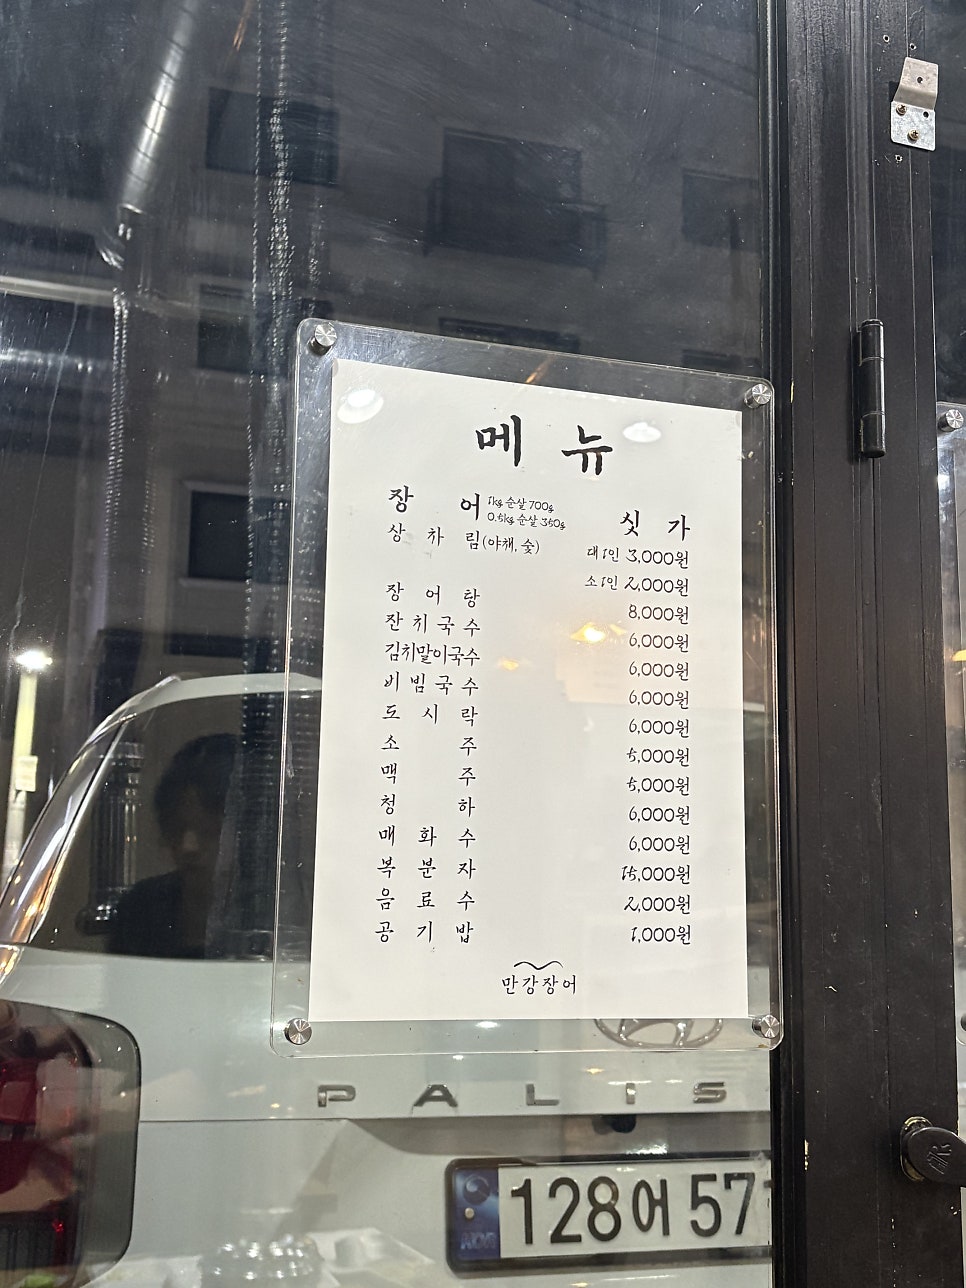 메뉴
장어 1kg 순살 700g
0.5kg 순살 350g
싯가
상차림(야채, 숯) 대1인 3,000원
소1인 2,000원
장어탕 8,000원
잔치국수 6,000원
김치말이국수 6,000원
비빔국수 6,000원
도시락 6,000원
소주 5,000원
맥주 5,000원
청하 6,000원
매화수 6,000원
복분자 15,000원
음료수 2,000원
공기밥 1,000원
만강장어
PALIS
128어 57